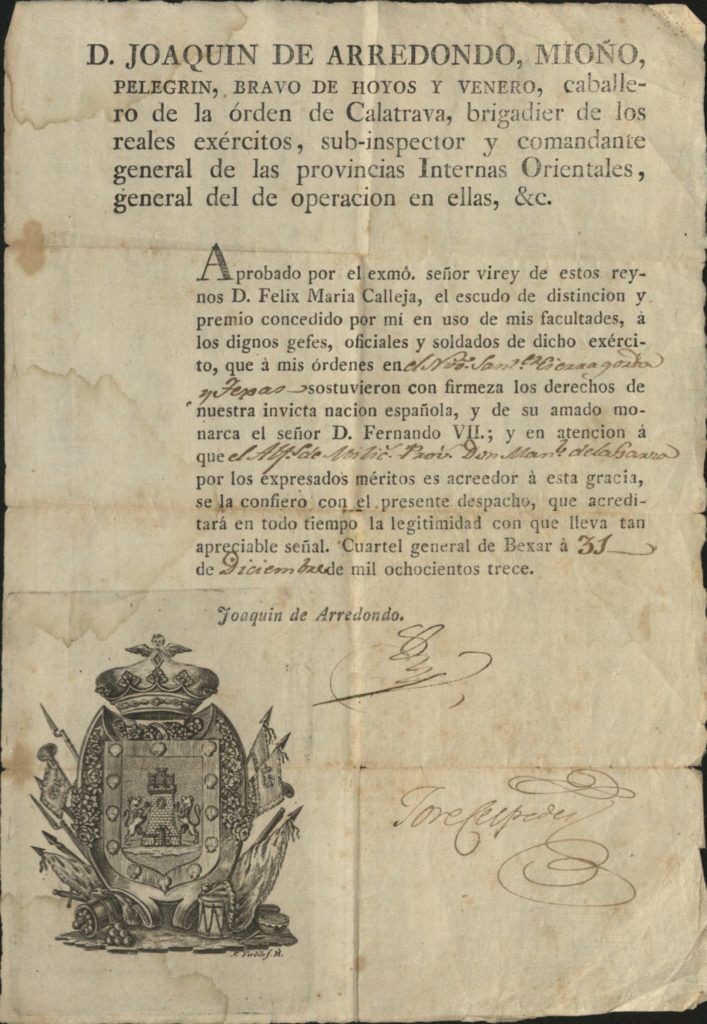 D. JOAQUIN DE ARREDONDO, MIOÑO,
PELEGRIN, BRAVO DE HOYOS Y VENERO, caballe-
ro de la órden de Calatrava, brigadier de los
reales exércitos, sub-inspector y comandante
general de las provincias Internas Orientales,
general del de operacion en ellas, &c.
Aprobado por el exmô. señor virey de estos rey-
nos D. Felix Maria Calleja, el escudo de distincion y
premio concedido por mí en uso de mis facultades, á
los dignos gefes, oficiales y soldados de dicho exérci-
to, que á mis órdenes en el Nvo. Sant.r Cierragorda
y Texas sostuvieron con firmeza los derechos de
nuestra invicta nacion española, y de su amado mo-
narca el señor D. Fernando VII.; y en atencion á
que el Alfs. de Milic.s Prov.s Don Man.l de la Garza
por los expresados méritos es acreedor á esta gracia,
se la confiero con el presente despacho, que acredi-
tará en todo tiempo la legitimidad con que lleva tan
apreciable señal. Cuartel general de Bexar á 31
de Diciembre de mil ochocientos trece.
Joaquin de Arredondo.